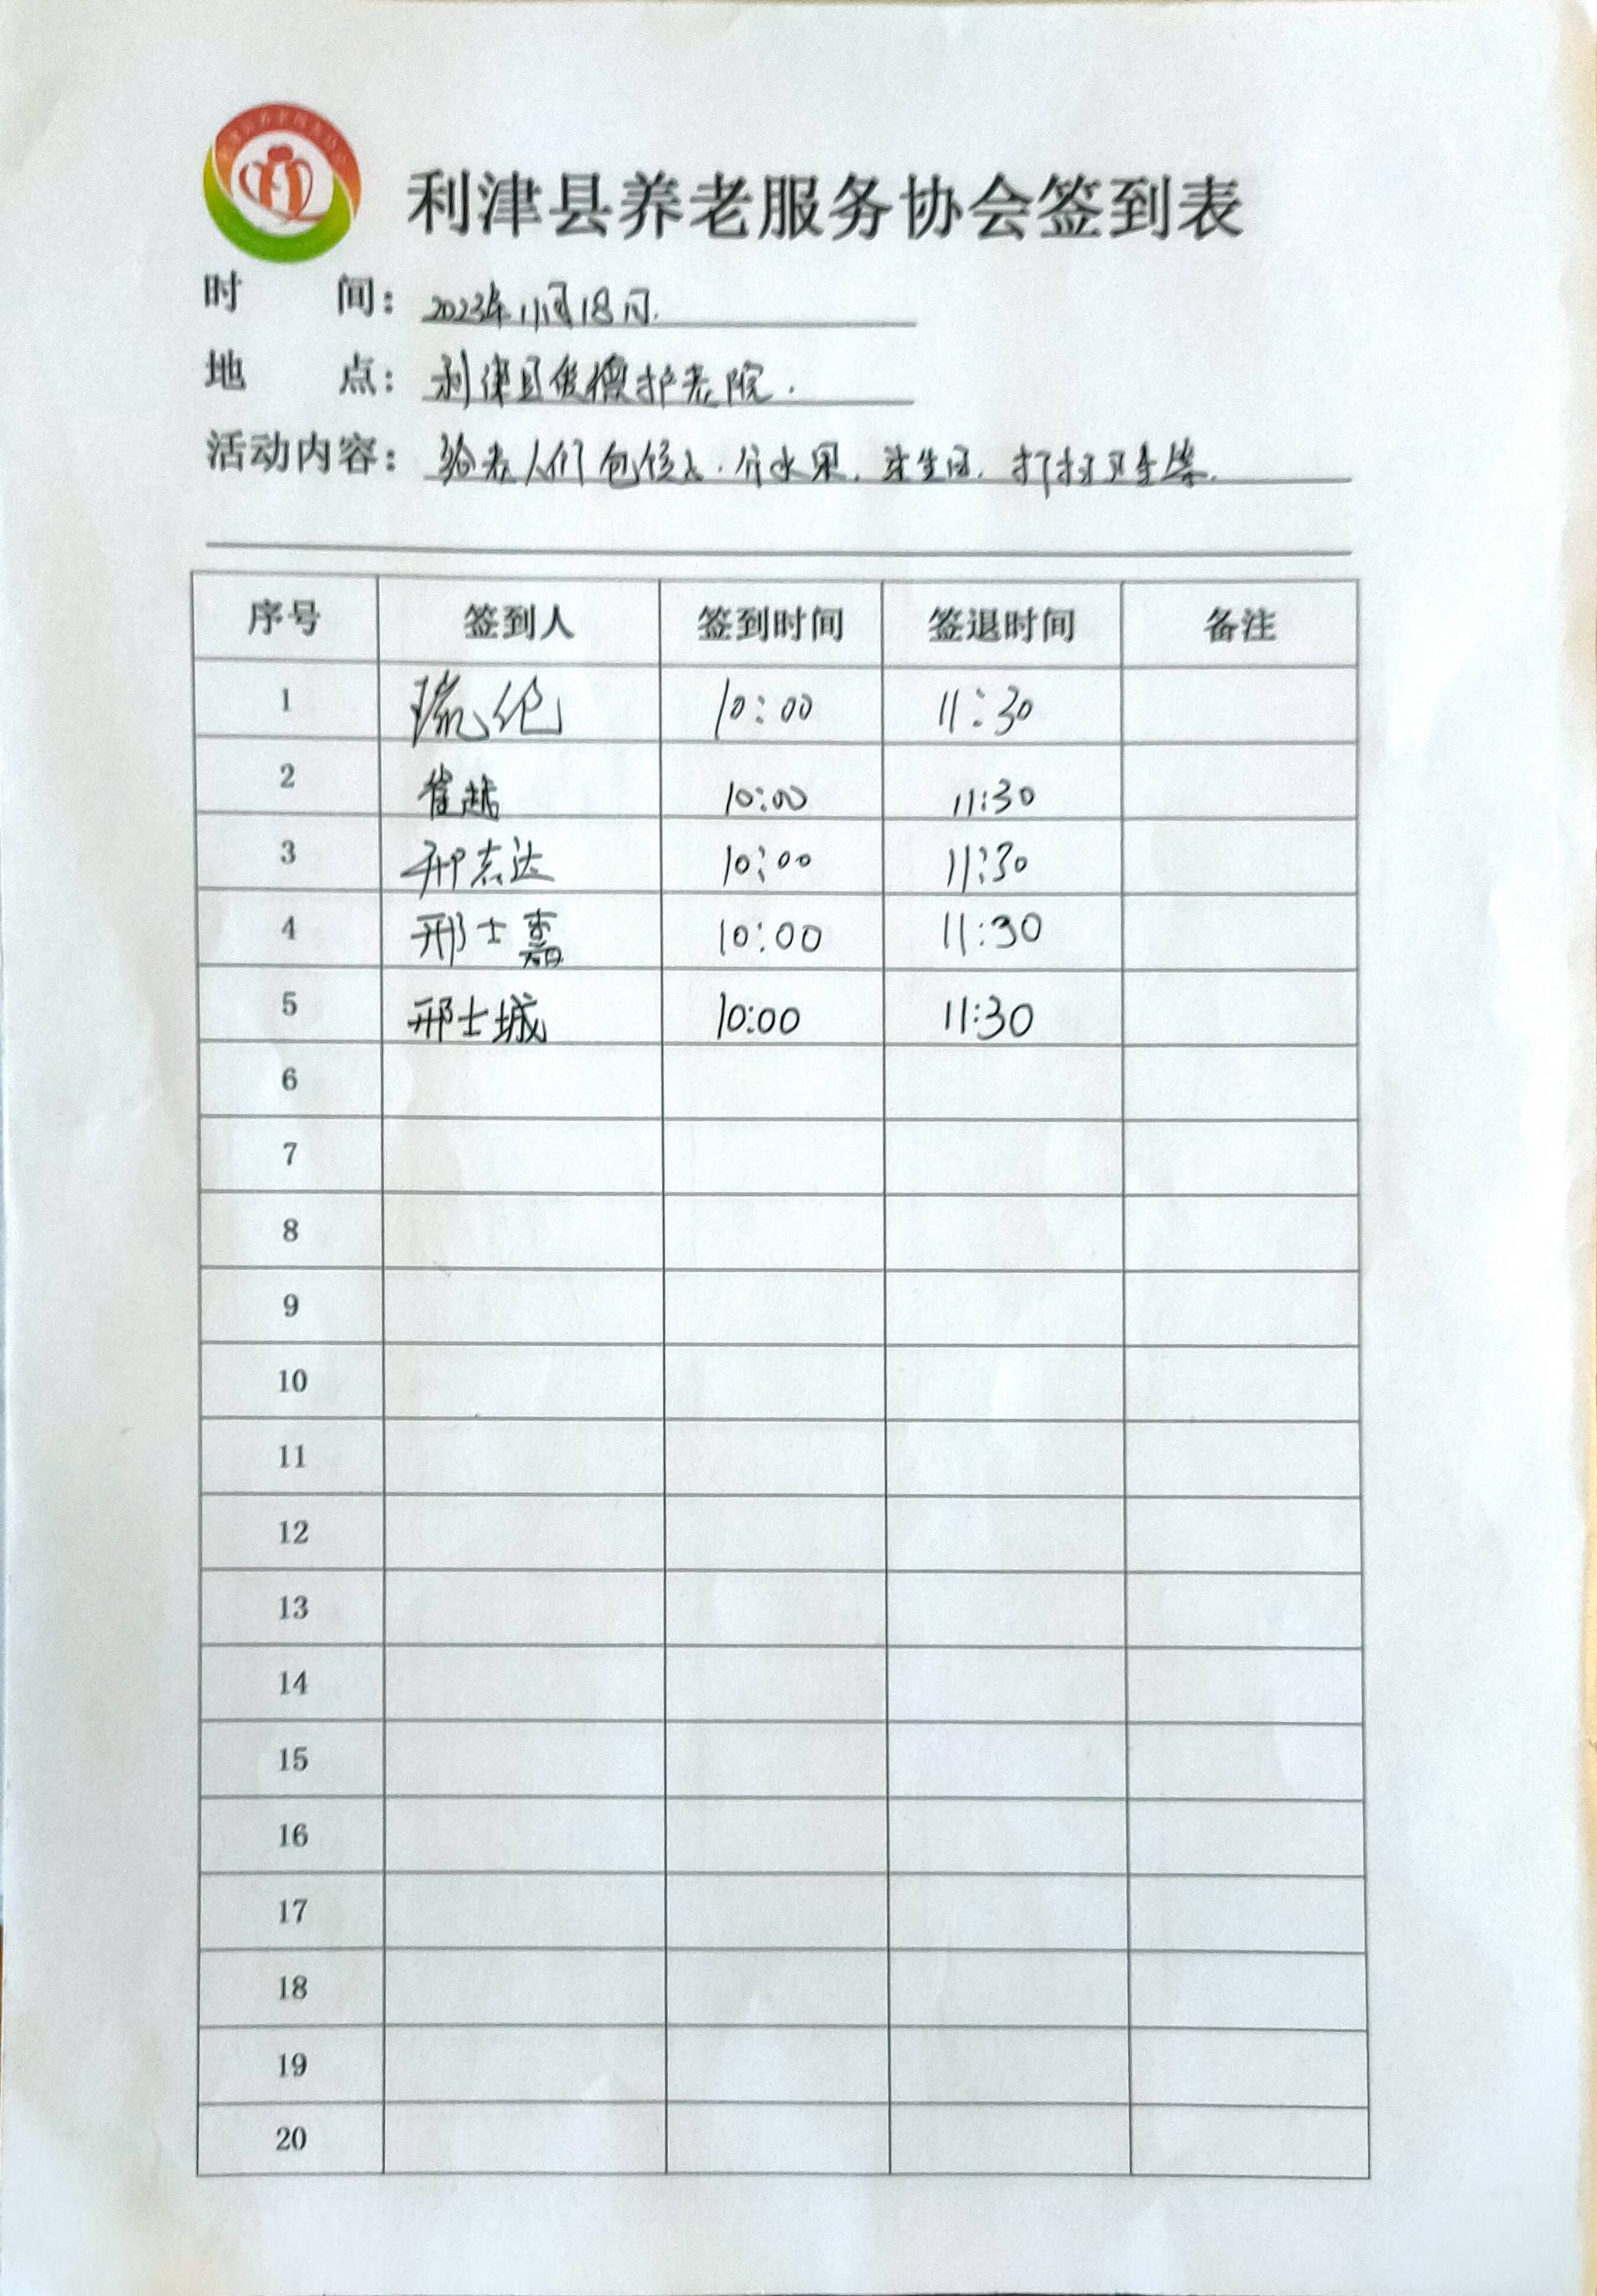 利津县养老服务协会签到表
时 间： 2023年11月18日.
地 点： 利津县俊德护老院.
活动内容： 给老人们包饺子.分水果. 生日. 打扫卫生等.
序号 签到人 签到时间 签退时间 备注
1 10:00 11:30
2 崔越 10:00 11:30
3 邢志达 10:00 11:30
4 邢士嘉 10:00 11:30
5 邢士城 10:00 11:30
6
7
8
9
10
11
12
13
14
15
16
17
18
19
20